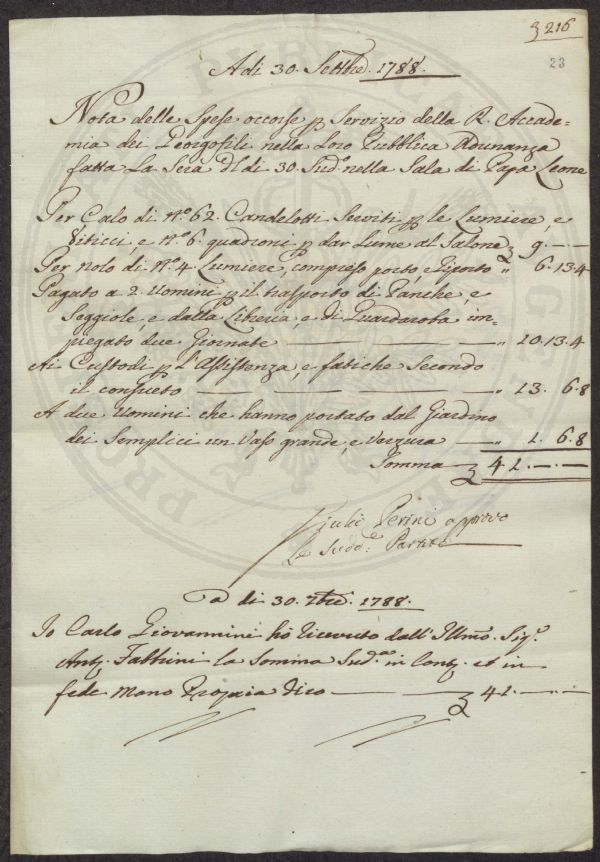 3 216
23
A di 30. Settbre. 1788.
Nota delle Spese occorse p Servizio della R. Accade=
mia dei Georgofili nella Loro Pubblica Adunanza
fatta La Sera dl di 30. Sudo. nella Sala di Papa Leone
Per Calo di No. 62. Candelotti Serviti p le Lumiere, e
Viticci, e No. 6. quadroni p dar Lume al Salone 9.—.—
Per nolo di No. 4. Lumiere, compreso porto, e riporto " 6.13.4
Pagato a 2. Uomini p il trasporto di Panche, e
Seggiole, e dalla Libreria, e di Guardaroba im=
piegato due Giornate — " 10.13.4
Ai Custodi p l'Assistenza, e fatiche Secondo
il consueto — " 13. 6.8
A due Uomini che hanno portato dal Giardino
dei Semplici un Vaso grande, e Verzura — " 1. 6.8
Somma — 41.—.—
Giulio Perini approvo
Le Sudde. Partite
A di 30. 7bre. 1788.
Io Carlo Giovannini hò ricevuto dall'Illmo. Sigr.
Anto. Fabbrini la Somma Suda. in Conti. et in
fede Mano Propria dico — 41.—.—